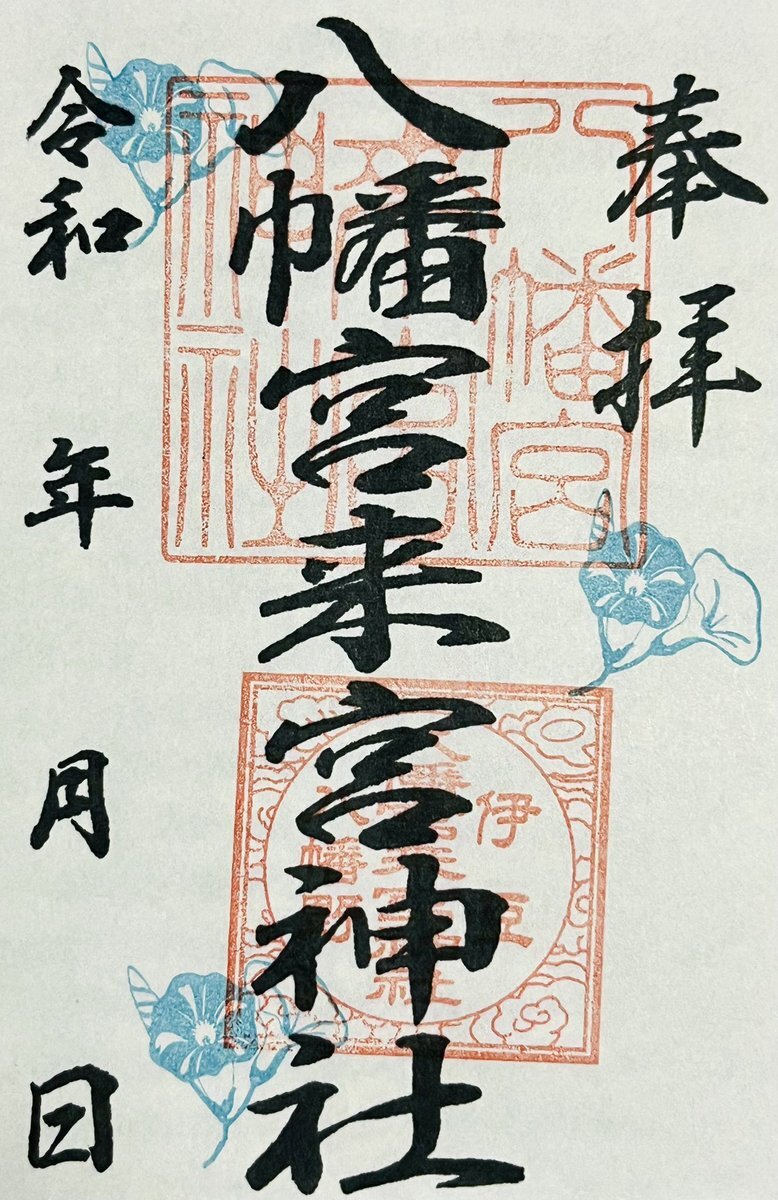 奉拝
八幡宮来宮神社
令和 年 月 日
八幡宮
来宮
神社
伊豆
八幡宮来宮神社
八幡野